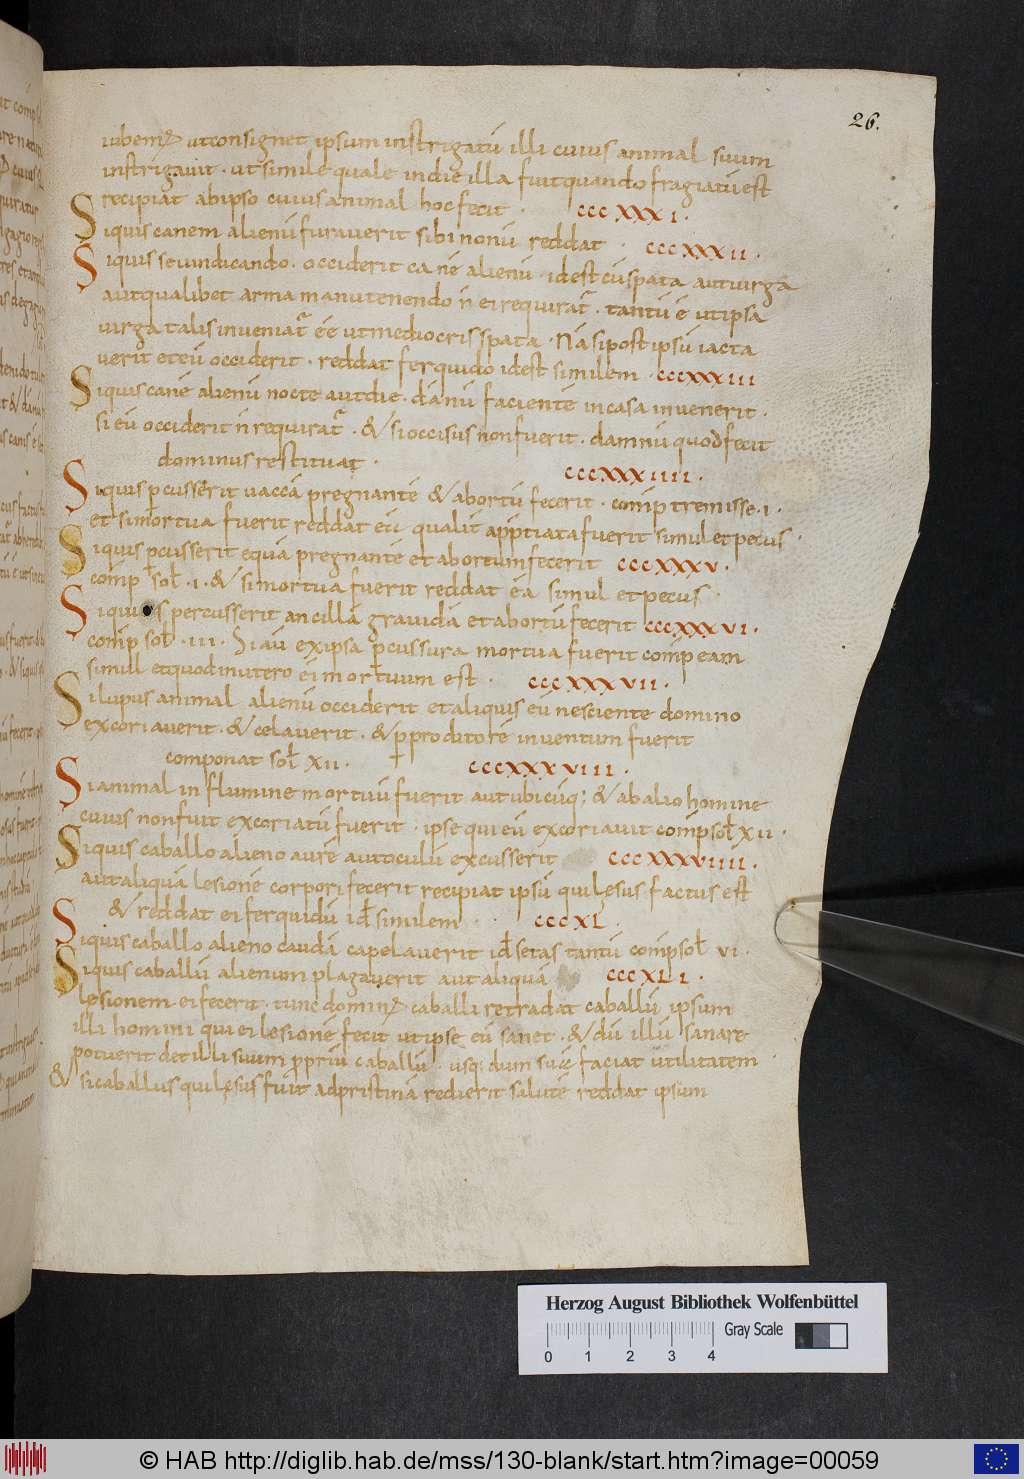 26.
iubem(us) ut consignet ipsum instrigatū illi cuius animal suum
instrigauit · ut simile quale in die illa fuit quando fragiatū est
recipiat ab ipso cuius animal hoc fecit · CCCXXXI ·
Si quis canem alienū furauerit sibi nonū reddat · CCCXXXII ·
Si quis se uindicando · occiderit canē alienū · id est cū spata aut uirga
aut qualibet arma manu tenendo n̄ ei requirat̄ · tantū ē ut ipsa
uirga talis inueniat̄ eē ut mediocris spata · Nā si post ipsū iacta
uerit et eū occiderit · reddat ferquido id est similem · CCCXXXIII
Si quis canē alienū nocte aut die · dānū facientē in casa inuenerit ·
si eū occiderit n̄ requirat̄ · & si occisus non fuerit · damnū quod fecit
dominus restituat · CCCXXXIIII ·
Si quis ꝑcusserit uaccā pregnantē & abortū fecerit · comp̄ tremisse · I ·
et si mortua fuerit reddat eū qualit̄ app̄tiata fuerit simul et pecus ·
Si quis ꝑcusserit equā pregnantē et abortum fecerit CCCXXXV ·
comp̄ sol̄ · I · & si mortua fuerit reddat eā simul et pecus ·
Si quis percusserit ancillā grauidā et abortū fecerit CCCXXXVI ·
comp̄ sol̄ · III · Si aū ex ipsa ꝑcussura mortua fuerit comp̄ eam
simul et quod in utero ei mortuum est · CCCXXXVII ·
Si lupus animal alienū occiderit et aliquis eū nesciente domino
excoriauerit · & celauerit · & ꝑ proditorē inuentum fuerit
componat sol̄ XII · CCCXXXVIII ·
Si animal in flumine mortuū fuerit aut ubicūq; & ab alio homine
cuius non fuit excoriatū fuerit · ipse qui eū excoriauit comp̄ sol̄ XII ·
Si quis caballo alieno aurē aut oculū excusserit CCCXXXVIIII ·
aut aliquā lesionē corpori fecerit recipiat ipsū qui lesus factus est
& reddat ei ferquidū id̄ similem · CCCXL ·
Si quis caballo alieno caudā capelauerit id̄ setas tantū comp̄ sol̄ VI ·
Si quis caballū alienum plagauerit aut aliquā CCCXLI ·
lęsionem ei fecerit · tunc domin(us) caballi retradat caballū ipsum
illi homini qui ei lesionē fecit ut ipse eū sanet · & dū illū sanare
potuerit det illi suum ꝓpriū caballū · usq; dum suā faciat utilitatem
& si caballus qui lęsus fuit ad pristinā redierit salutē reddat ipsum
Herzog August Bibliothek Wolfenbüttel
Gray Scale
0 1 2 3 4
© HAB http://diglib.hab.de/mss/130-blank/start.htm?image=00059